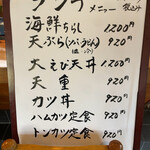 ランチ
メニュー 税込み
海鮮ちらし 1200円
天ぷら(ソバ,うどん) 920円
大えび天丼 1200円
天重 920円
カツ丼 920円
ハムカツ定食 920円
トンカツ定食 920円